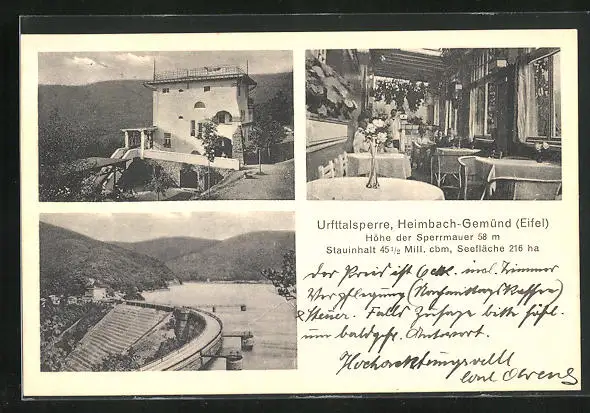 Urfttalsperre, Heimbach-Gemünd (Eifel)
Höhe der Sperrmauer 58 m
Stauinhalt 45 1/2 Mill. cbm, Seefläche 216 ha
Der Preis ist 6 incl. Zimmer
Verpflegung (Nachmittagskaffee)
& Steuer. Falls Zusage bitte höfl.
um baldgfl. Antwort.
Hochachtungsvoll
Carl